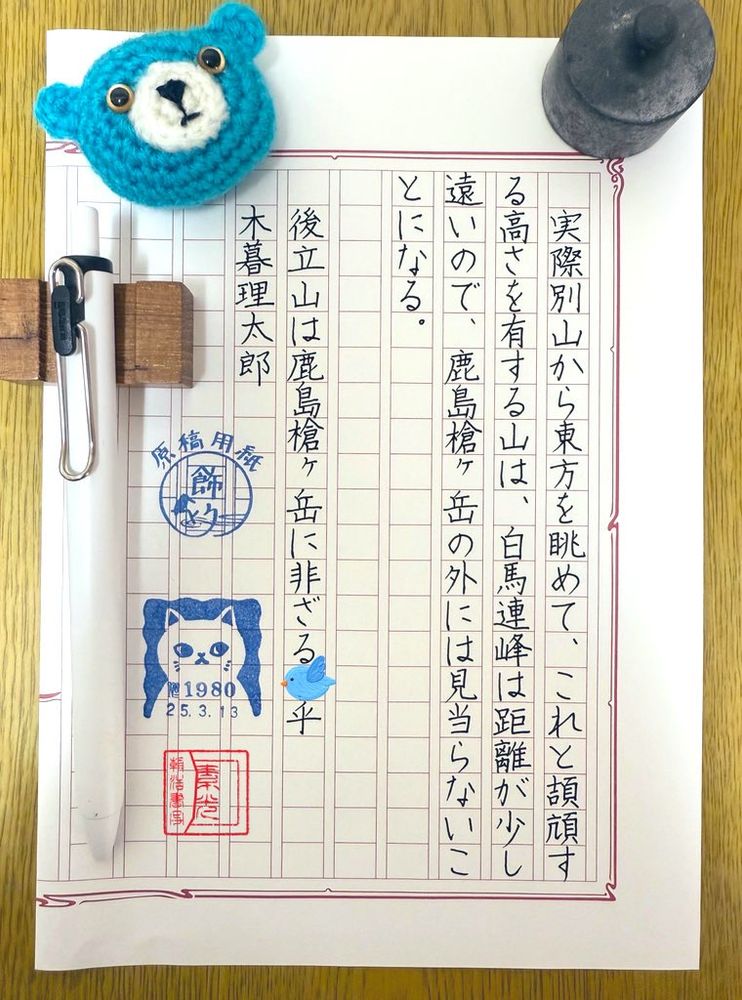 実際別山から東方を眺めて、これと頡頏す
る高さを有する山は、白馬連峰は距離が少し
遠いので、鹿島槍ヶ岳の外には見当らないこ
とになる。
後立山は鹿島槍ヶ岳に非ざる乎
木暮理太郎
原稿用紙
飾り
1980
25.3.13